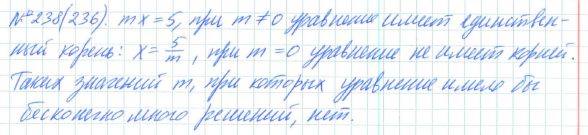 №238(236). mx = 5, при m ≠ 0 уравнение имеет единствен-
ный корень: x = 5/m, при m = 0 уравнение не имеет корней.
Таких значений m, при которых уравнение имело бы
бесконечно много решений, нет.